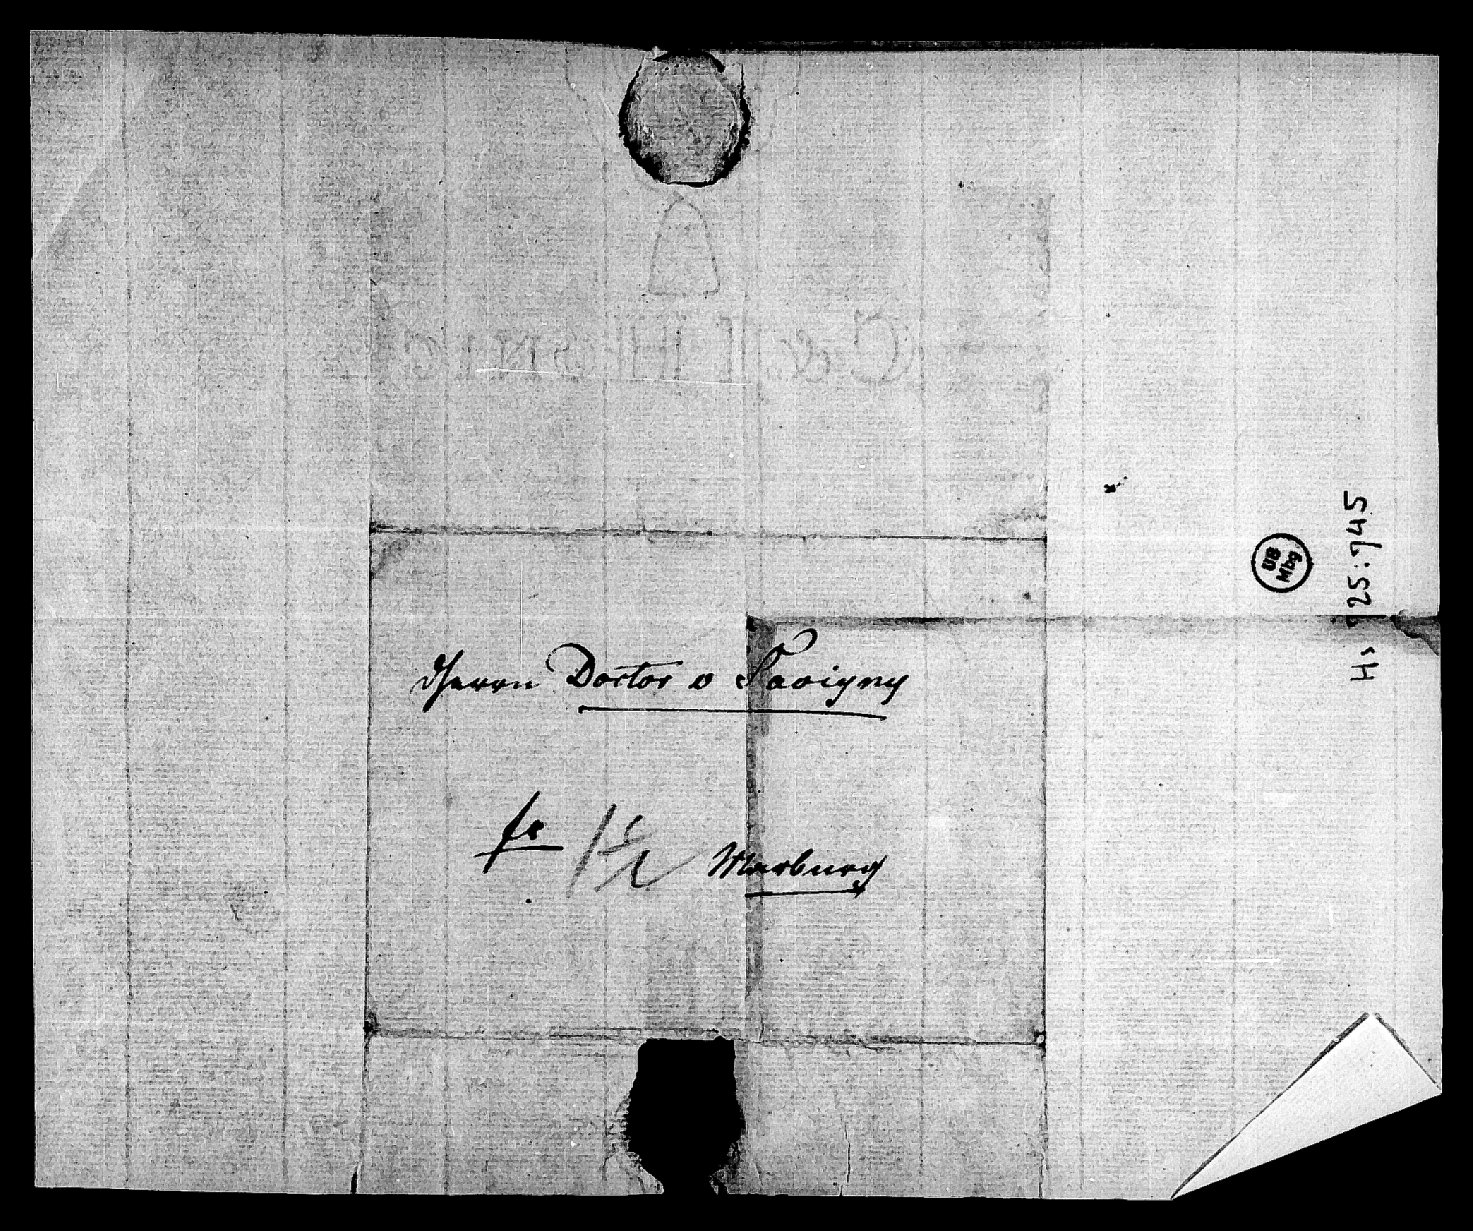 Herrn Doctor v Savigny
fr
Marburg
UB
Mbg
Hs 725:745